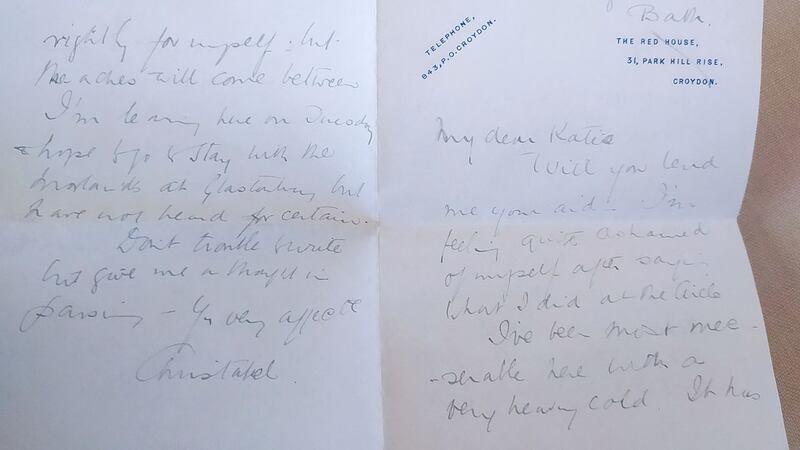 Bath.
TELEPHONE,
843, P.O. CROYDON.
THE RED HOUSE,
31, PARK HILL RISE,
CROYDON.
My dear Katie
Will you lend
me your aid - I'm
feeling quite ashamed
of myself after saying
what I did at the Circle
I've been most mee-
-serable here with a
very heavy cold. It has
rightly for myself: but
the aches will come between
I'm leaving here on Tuesday
& hope to go & stay with the
at Glastonbury but
have not heard for certain.
Don't trouble to write
but give me a thought in
passing - Yr very affecte
Christabel.